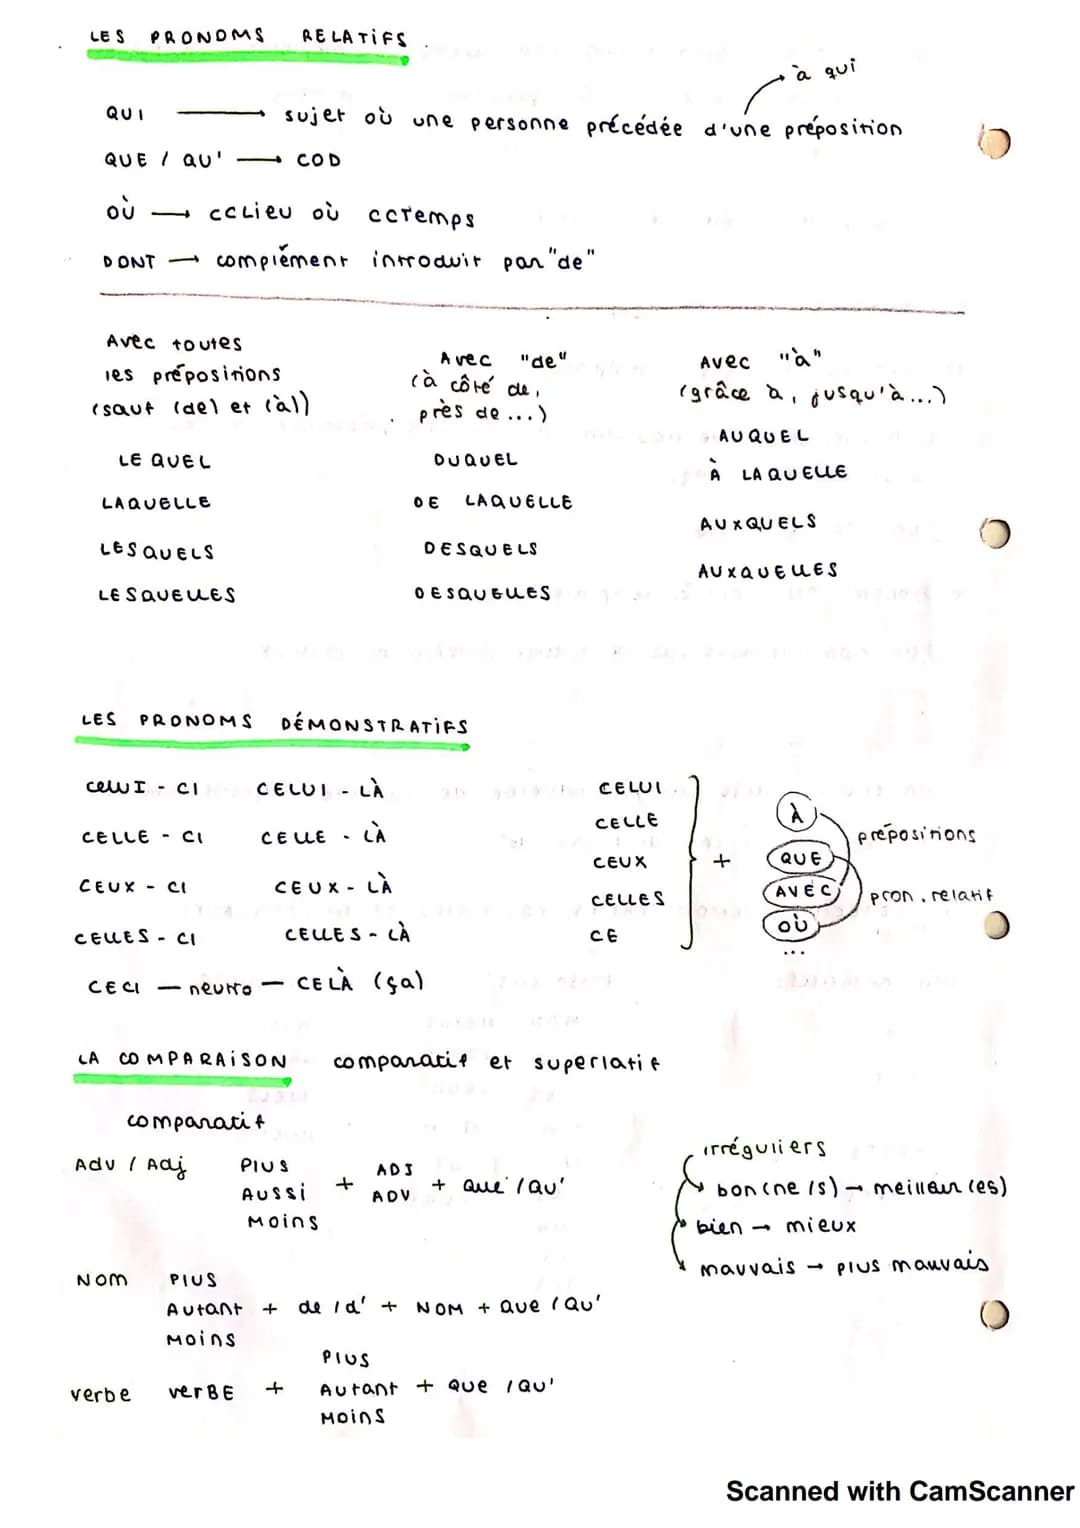 LES PRONOMS RELATiFS
à qui
QUI → sujet où une personne précédée d'une préposition
QUE / QU' → COD
où → ccLieu où ccTemps
DONT → complément introduit par "de"
Avec toutes
les prépositions
(sauf (de) et (à))
LE QUEL
LAQUELLE
LESQUELS
LESQUELLES
Avec "de"
(à côté de,
près de ...)
DUQUEL
DE LAQUELLE
DESQUELS
DESQUELLES
Avec "à"
(grâce à, jusqu'à...)
AUQUEL
À LAQUELLE
AUXQUELS
AUXQUELLES
LES PRONOMS DÉMONSTRATiFS
celuI - CI CELUI - LÀ
CELLE - CI CELLE - LÀ
CEUX - CI CEUX - LÀ
CELLES - CI CELLES - LÀ
CECI — neutro — CELÀ (ça)
CELUI
CELLE
CEUX
CELLES
CE
+
À
QUE
AVEC
où
...
prépositions
pron. relatif
LA COMPARAiSON comparatif et superlatif
comparatif
Adv / Adj PlUS
AUSSi + ADJ ADV + que / qu'
Moins
irréguliers
bon(ne/s) → meilleur(es)
bien → mieux
mauvais → plus mauvais
NOM PlUS
Autant + de / d' + NOM + que / Qu'
Moins
PlUS
verbe verBE + Autant + que / Qu'
Moins
Scanned with CamScanner